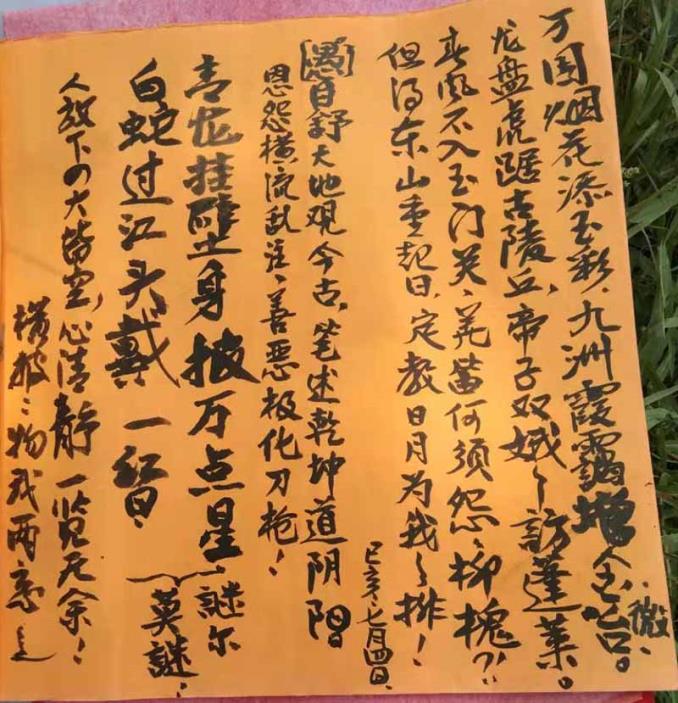 万国烟花添玉彩，九洲霞霭增金台。微、
龙盘虎踞古陵丘，帝子双娥々访蓬莱。
春风不入玉门关、羌笛何须怨、柳槐？！
但得东山重起日，定教日月为我々排！
己亥、七月四日、
【愚】自舒大地观今古，笔述乾坤道阴阳
恩怨横流乱注、善恶极化刀枪！
青龙挂壁身披万点星
白蛇过江头戴一红日、
谜尔
莫谜、
人放下の大皆空，心清静一览无余！
横披：物我两忘